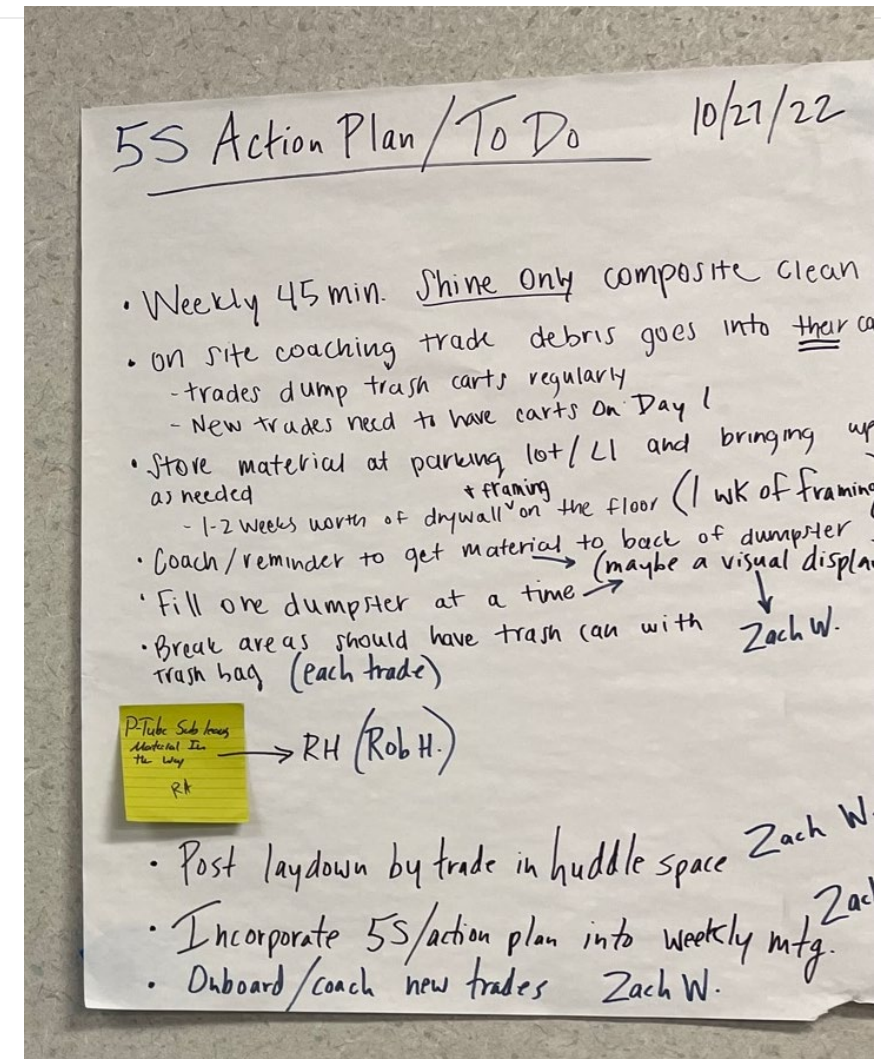 5S Action Plan/To Do 10/27/22
• Weekly 45 min. Shine Only composite clean
• on site coaching trade debris goes into their
- trades dump trash carts regularly
- New trades need to have carts on Day 1
• Store material at parking lot/L1 and bringing up
as needed
+ framing
- 1-2 weeks worth of drywall on the floor (1 wk of framing
• Coach/reminder to get material to back of dumpster
(maybe a visual
• Fill one dumpster at a time
• Break areas should have trash can with Zach W.
trash bag (each trade)
P-Tube Sub leaves
Material In
the way
RH
RH (Rob H.)
• Post laydown by trade in huddle space Zach W.
• Incorporate 5S/action plan into weekly mtg.
• Onboard/coach new trades Zach W.